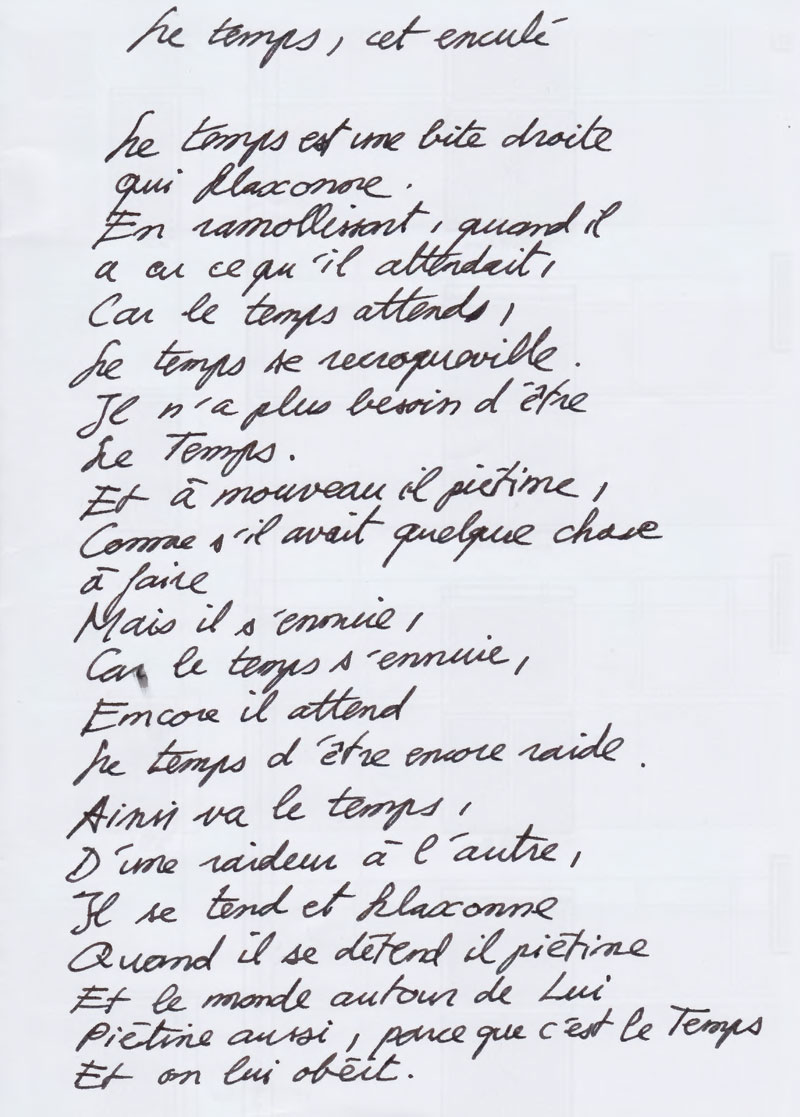 Le temps, cet enculé
Le temps est une bite droite
qui klaxonne.
En ramollissant, quand il
a eu ce qu'il attendait,
Car le temps attends,
Le temps se recroqueville.
Il n'a plus besoin d'être
Le Temps.
Et à nouveau il piétine,
Comme s'il avait quelque chose
à faire
Mais il s'ennuie,
Car le temps s'ennuie,
Encore il attend
Le temps d'être encore raide.
Ainsi va le temps,
D'une raideur à l'autre,
Il se tend et klaxonne
Quand il se détend il piétine
Et le monde autour de Lui
Piétine aussi, parce que c'est le Temps
Et on lui obéit.